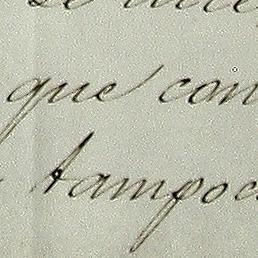 que con
tampoc